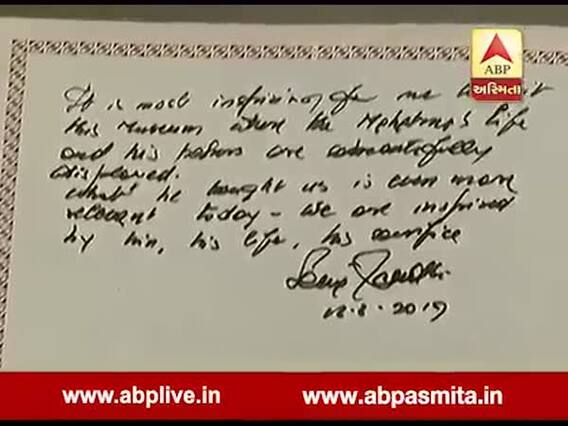 ABP
અસ્મિતા
It is most inspiring for me to visit
this Museum where the Mahatma's life
and his are
displayed.
What he taught us is even more
relevant today - We are inspired
by him, his life, his sacrifice
Sonia Gandhi
2019
www.abplive.in
www.abpasmita.in